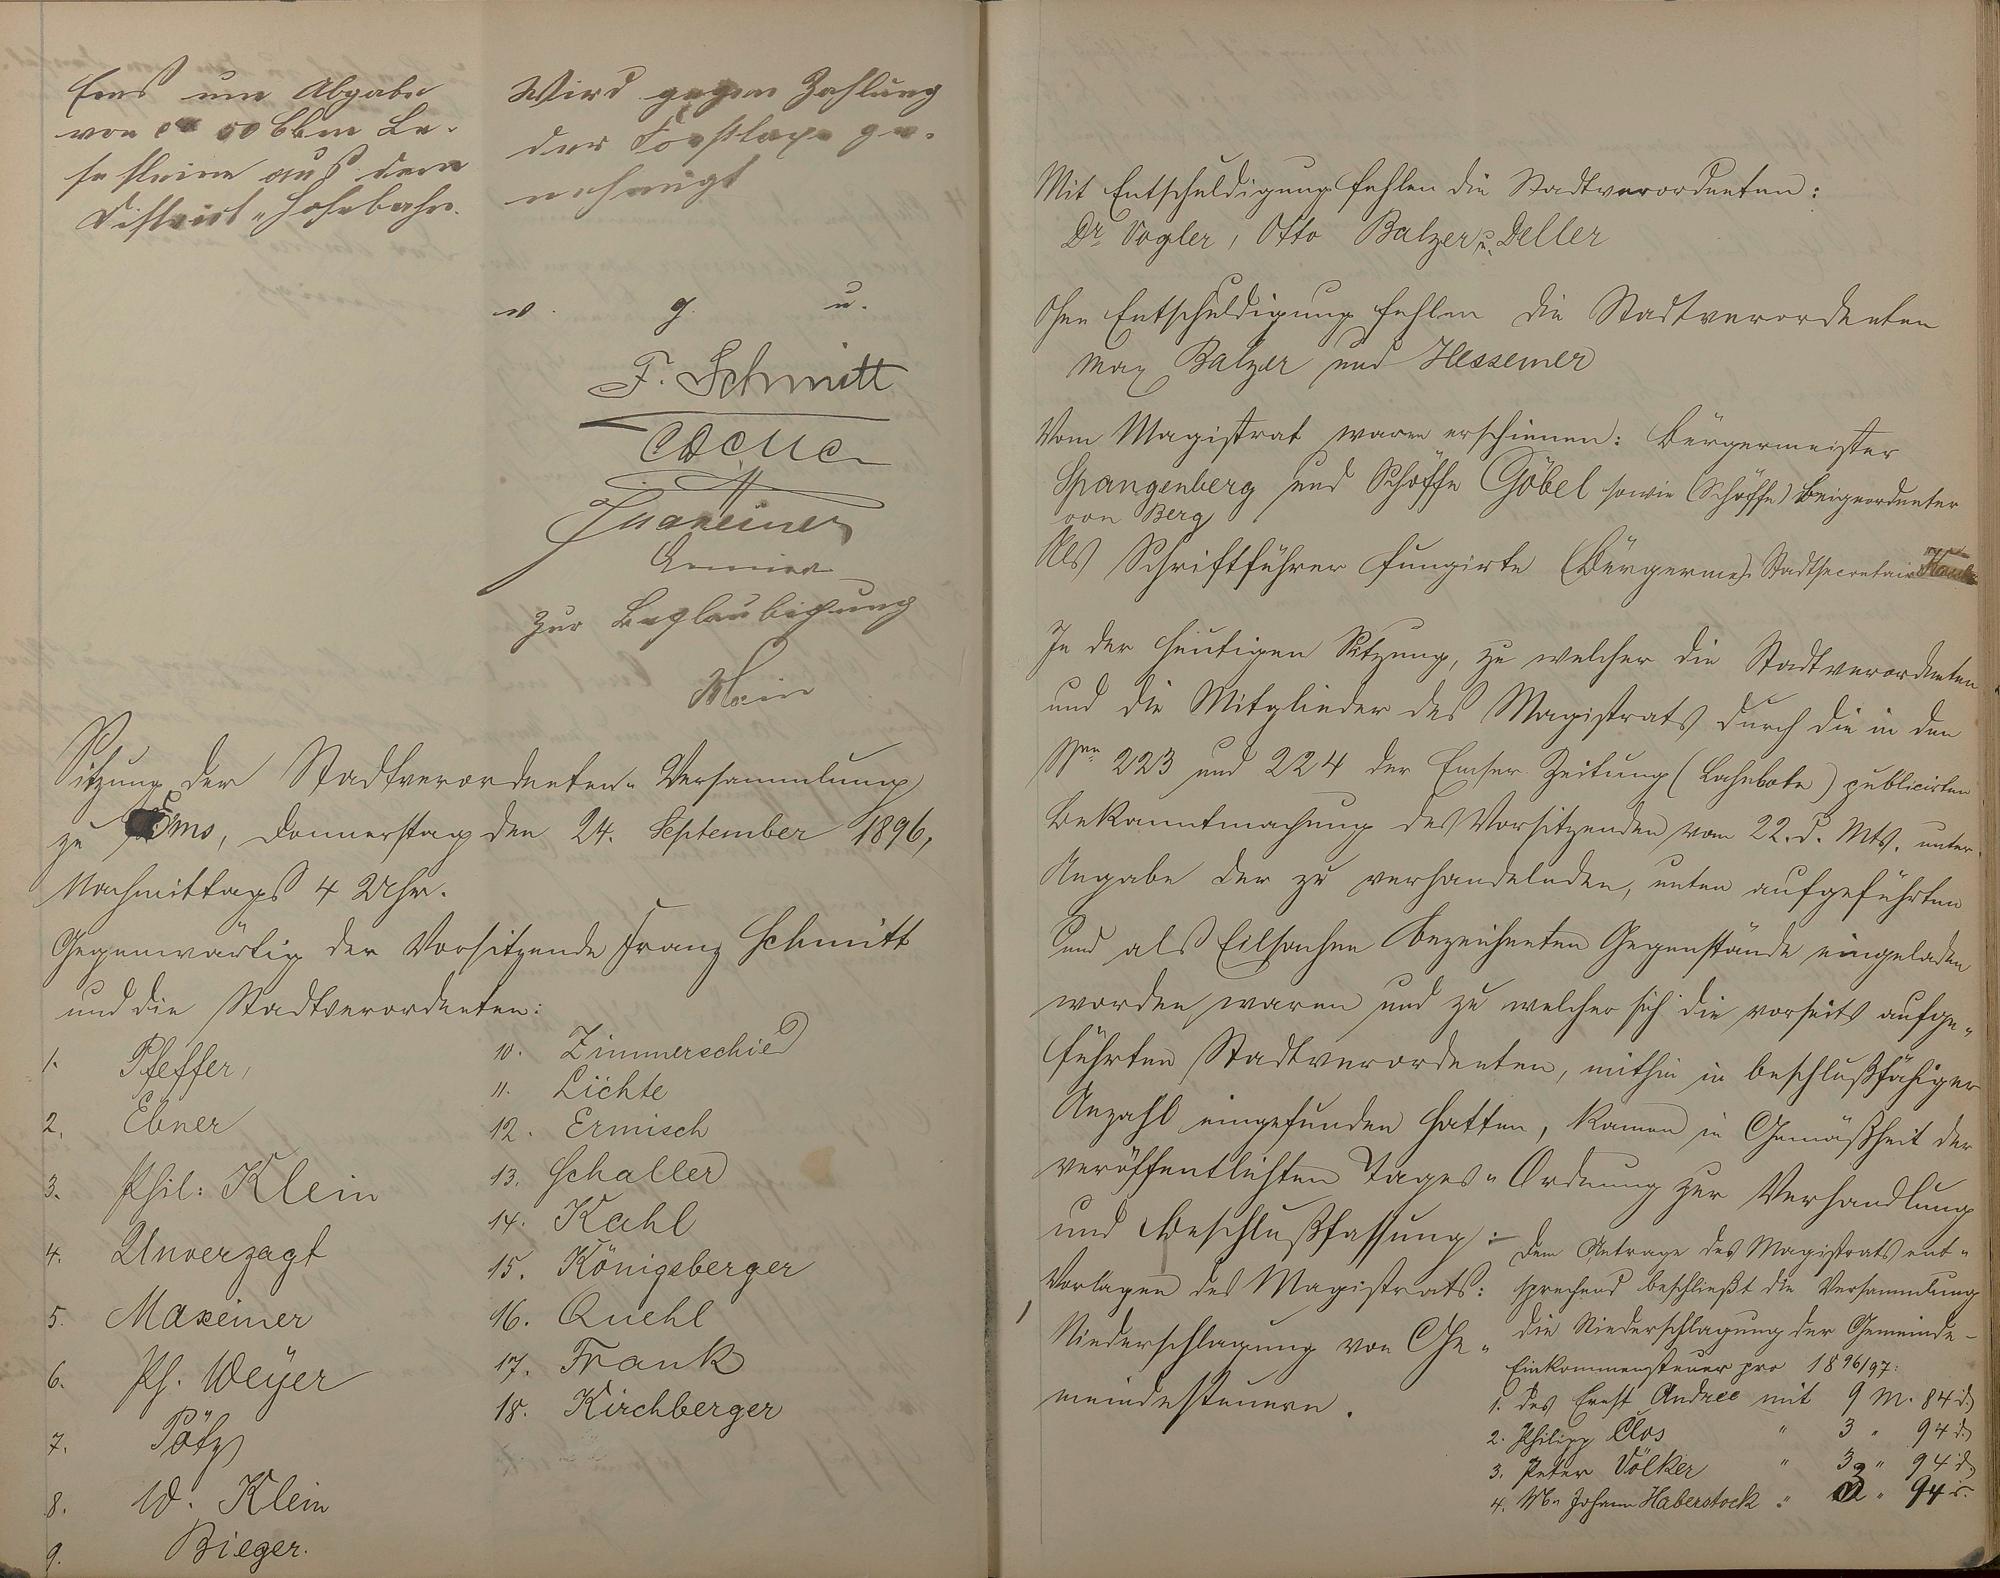 Ems um Abgabe
von 50 Cbm Le-
sesteine aus dem
Distrikt "Hohebahn.
Wird gegen Zahlung
der Forsttaxe ge-
nehmigt
v. g. u.
F. Schmitt
Maxeiner
Zur Beglaubigung
Sitzung der Stadtverordneten-Versammlung
zu Ems, Donnerstag den 24. September 1896,
Nachmittags 4 Uhr.
Gegenwärtig der Vorsitzende Franz Schmitt
und die Stadtverordneten:
1. Pfeffer,
2. Ebner
3. Phil: Klein
4. Unverzagt
5. Maxeiner
6. Ph. Weyer
7. Pötz
8. W. Klein
9. Bieger.
10. Zimmerschied
11. Lichte
12. Ermisch
13. Schaller
14. Kahl
15. Königsberger
16. Quehl
17. Frank
18. Kirchberger
Mit Entschuldigung fehlen die Stadtverordneten:
Dr Vogler, Otto Balzer u. Deller
Ohne Entschuldigung fehlen die Stadtverordneten
Max Balzer und Hessemer
Vom Magistrat waren erschienen: Bürgermeister
Spangenberg und Schöffe Göbel sowie (Schöffe) Beigeordneter
von Berg
Als Schriftführer fungirte (Bürgerm.) Stadtsecretair
In der heutigen Sitzung, zu welcher die Stadtverordneten
und die Mitglieder des Magistrats durch die in den
Nrn 223 und 224 der Emser Zeitung (Lahnbote) publicirten
Bekanntmachung des Vorsitzenden vom 22. d. Mts. unter
Angabe der zu verhandelnden, unten aufgeführten
und als Eilsachen bezeichneten Gegenstände eingeladen
worden waren und zu welcher sich die vorseits aufge-
führten Stadtverordneten, mithin in beschlußfähiger
Anzahl eingefunden hatten, kamen in Gemäßheit der
veröffentlichten Tages-Ordnung zur Verhandlung
und Beschlußfassung:-
Vorlagen des Magistrats:
Niederschlagung von Ge-
meindesteuern.
Dem Antrage des Magistrats ent-
sprechend beschließt die Versammlung
die Niederschlagung der Gemeinde-
Einkommensteuer pro 1896/97:
1. des Ernst Andree mit 9 M. 84 d.
2. Philipp Clos " 3 " 94 d.
3. Peter Völker " 3 " 94 d.
4. Johann Haberstock " 3 " 94 d.